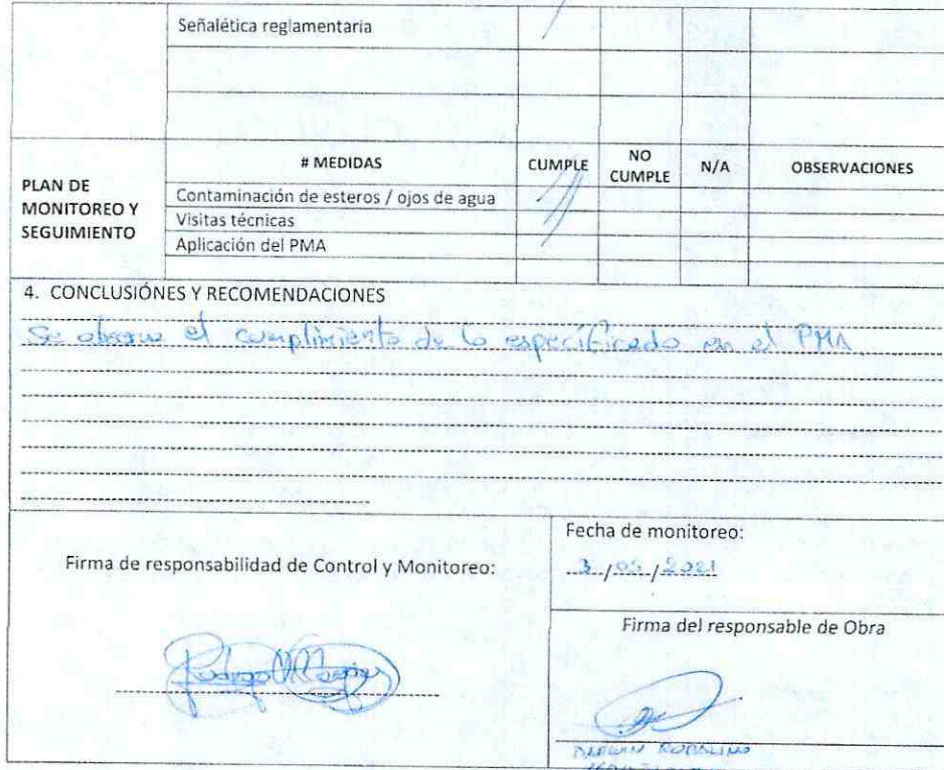 Señalética reglamentaria
PLAN DE MONITOREO Y SEGUIMIENTO
# MEDIDAS CUMPLE NO CUMPLE N/A OBSERVACIONES
Contaminación de esteros / ojos de agua
Visitas técnicas
Aplicación del PMA
4. CONCLUSIÓNES Y RECOMENDACIONES
Se observa el cumplimiento de lo especificado en el PMA
Fecha de monitoreo:
Firma de responsabilidad de Control y Monitoreo:
3/05/2021
Firma del responsable de Obra
DARWIN ROBALINO